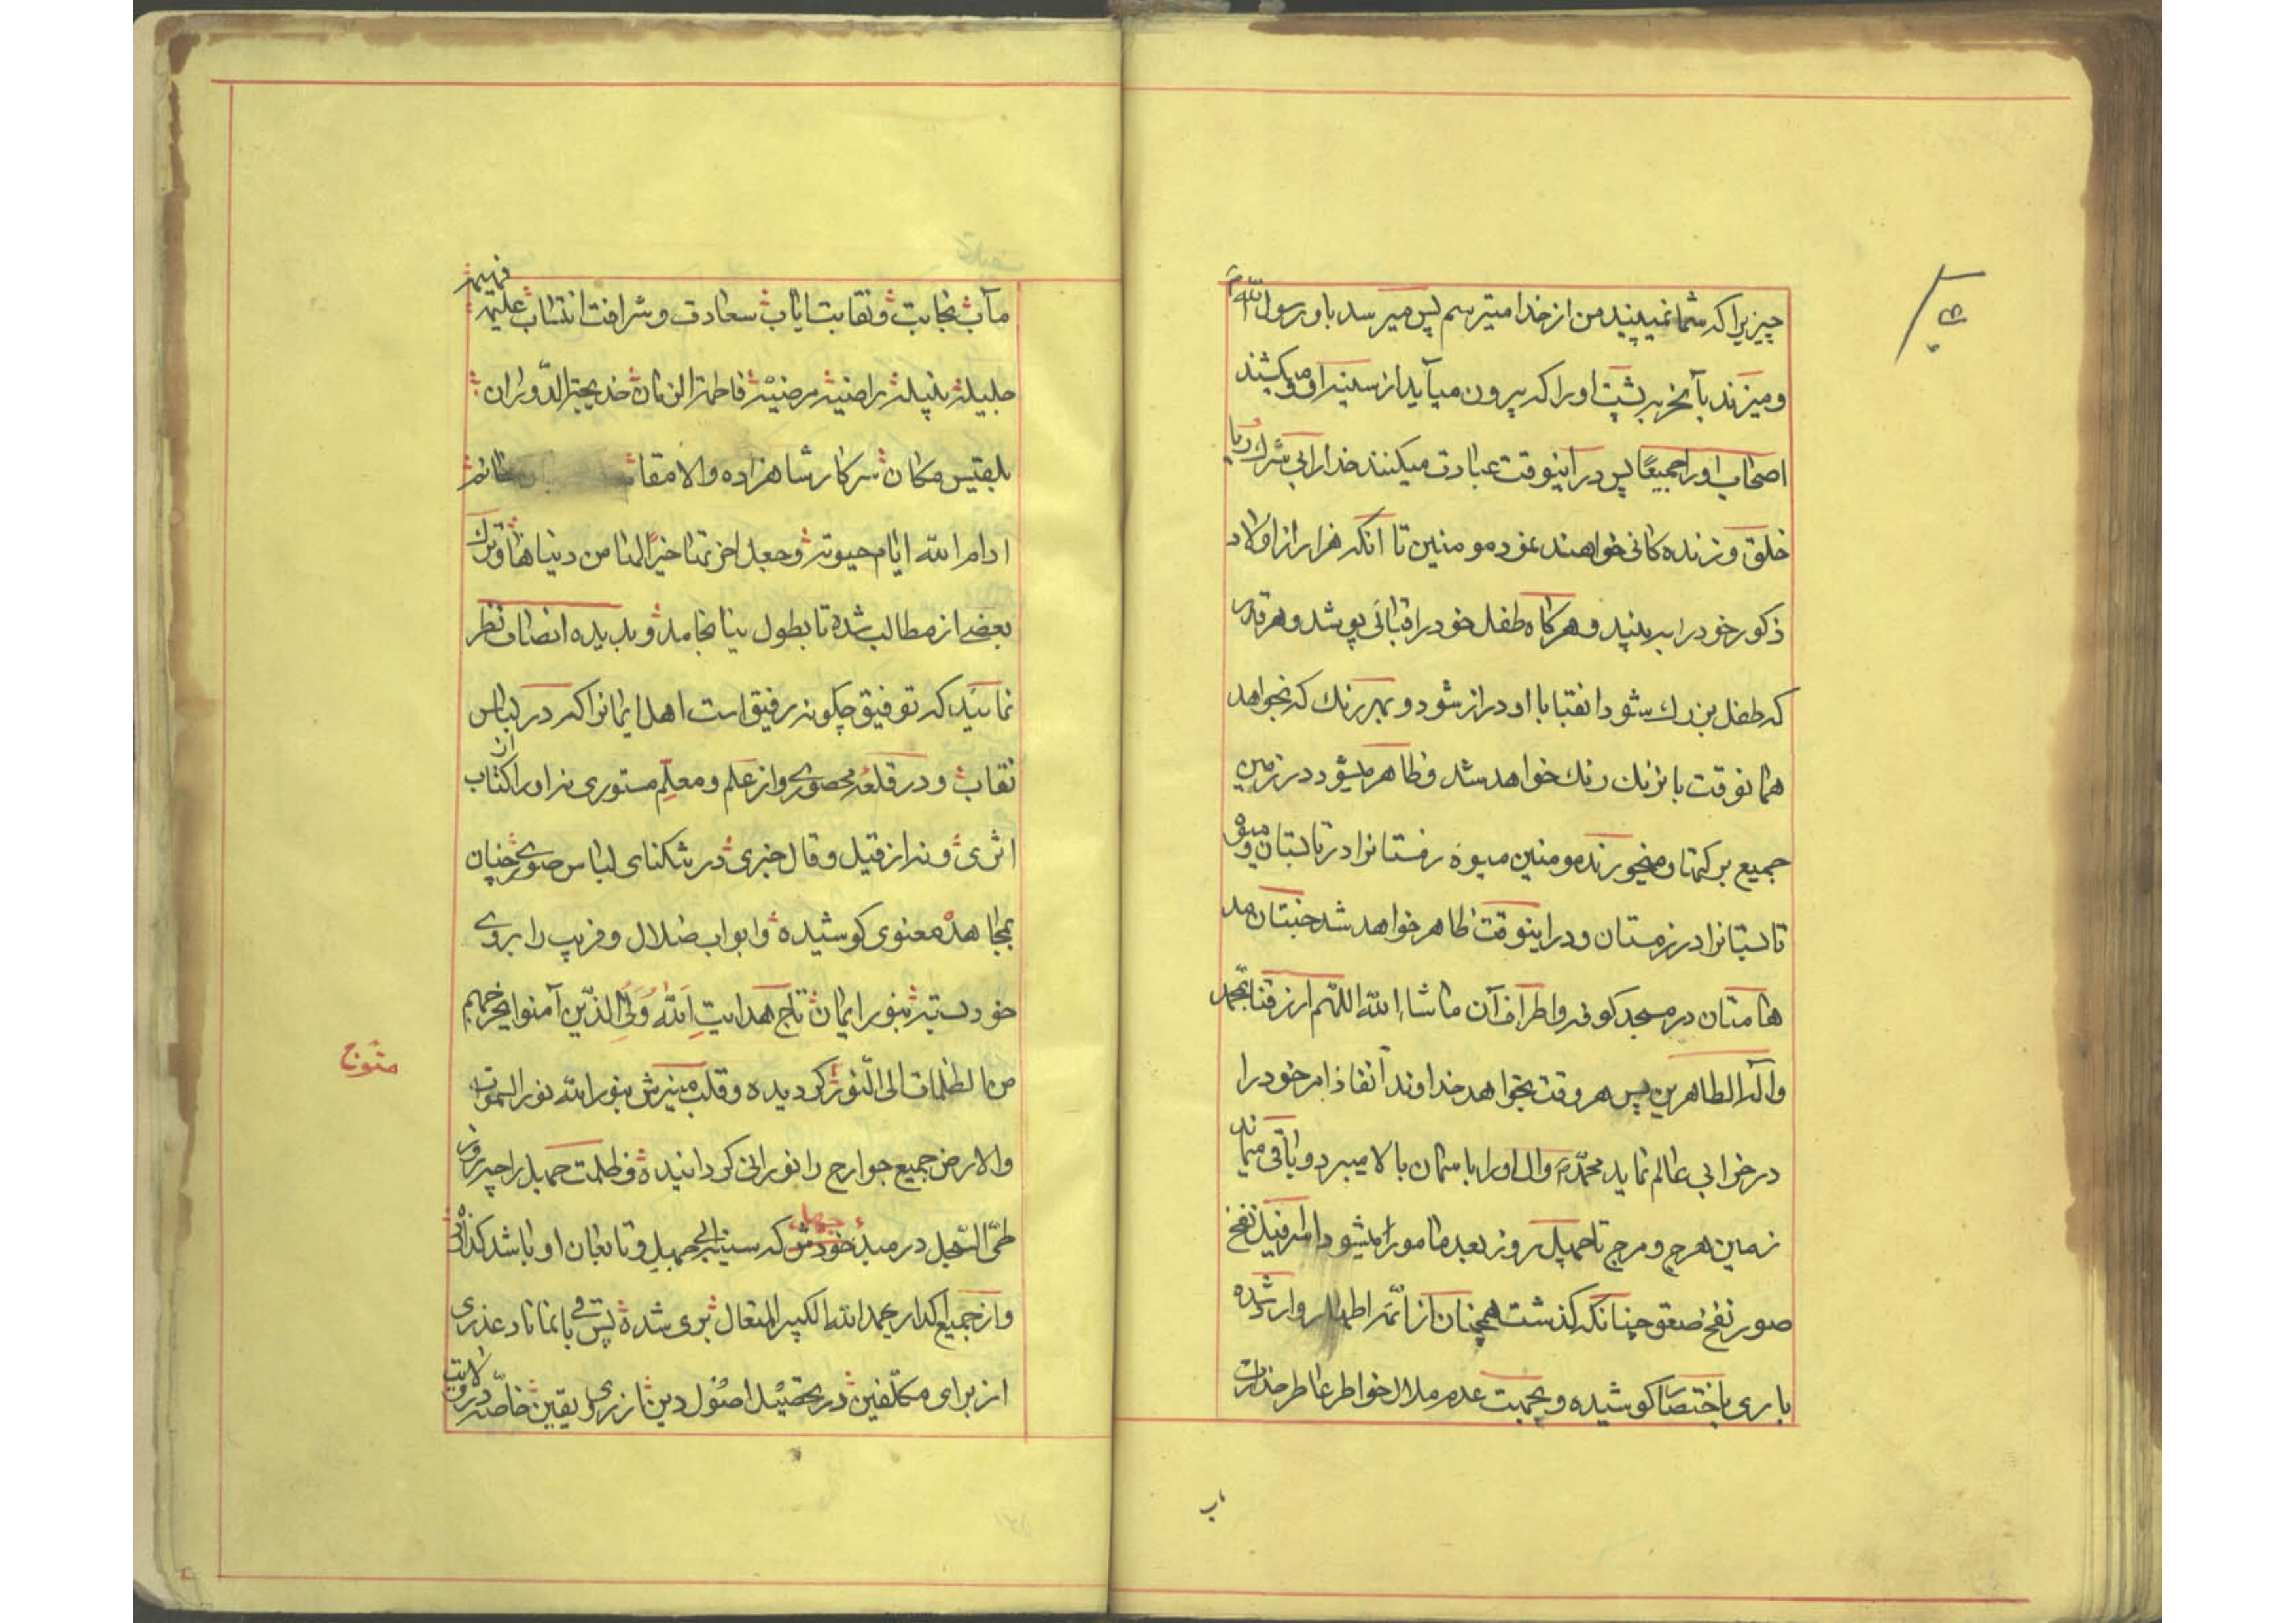 چیزیرا که شما نمیبینید من از خدا میترسم پس میرسد باو رسول الله ص
و میزند بآنحربه بر پشت او را که بیرون میآید از سینه او و میکشند
اصحاب او را جمیعًا پس در اینوقت عبادت میکنند خدا را بی شرك و ریا
خلق و زنده کانی خواهند نمود مومنین تا انکه هزار از اولاد
ذکور خود را به بینید و هر کاه طفل خود را قبائی پوشد و هر قدر
که طفل بزرك شود انقبا با او دراز شود و بهر رنك که بخواهد
همانوقت بانرنك رنك خواهد شد و ظاهر میشود در زمین
جمیع برکتها و میخورند مومنین میوهٔ زمستانرا در تابستان و میوه
تابستانرا در زمستان و در اینوقت ظاهر خواهد شد جنتان مد
هامتان در مسجد کوفه و اطراف آن ما شاء الله اللهم ارزقنا بمحمد
و آله الطاهرین پس هر وقت بخواهد خداوند انفاذ امر خود را
در خرابی عالم نماید محمد ص و ال او را باسمان بالا میبرد و باقی میماند
زمین هرج و مرج تا چهل روز بعد مامور میشود اسرافیل نفخ
صور نفخ صعق چنانکه کذشت همچنان از ائمه اطهار وارد شده
باری باختصار کوشیده و بجهت عدم ملال خواطر عاطر حذرات
مآب نجابت و نقابت ایاب سعادت و شرافت انتساب علیمه فهیمه
جلیله نبیله راضیه مرضیه فاطمة الزمان خدیجة الدوران
بلقیس مکان سرکار شاهزاده والا مقام خانم
ادام الله ایام حیوته و جعل اخرتها خیرًا لها من دنیاها و ترك
بعضی از مطالب شده تا بطول نینجامد و بدیده انصاف نظر
نمائید که توفیق چکونه رفیق است اهل ایمانرا که در لباس
نقاب و در قلعه محصوری و از علم و معلم مستوری نه او را از کتاب
اثری و نه از قیل و قال خبری در تنکنای لباس صوری چنان
بمجاهده معنوی کوشیده و ابواب ضلال و فریب را بروی
خود بسته بنور ایمان تاج هدایت اَللهُ وَلِیُّ الذین آمنوا یخرجهم
متوج
من الظلمات الی النور کردیده و قلب منیرش بنور الله نور السموات
والارض جمیع جوارح را نورانی کردانیده و ظلمت جهل را چه روز
طیّ السّجل در میدٔ خودش جهل که سینهٔ ابی جهل و تابعان او باشد کذاشته
و از جمیع اکدار بحمد الله الکبیر المتعال بری شده پس باقی نماناد عذری
از برای مکلّفین در تحصیل اصول دین از زری و یقین خاصّه در ولایت